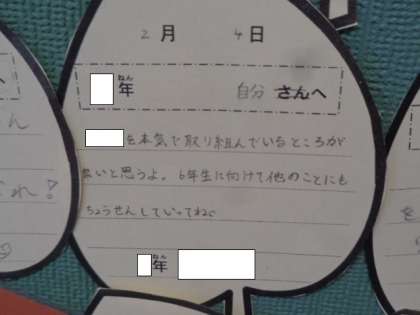 2月 4日
年 自分 さんへ
ねん
を本気で取り組んでいるところが
良いと思うよ。6年生に向けて他のことにも
ちょうせんしていってね。
年
ねん
ん
れ!
へ
を